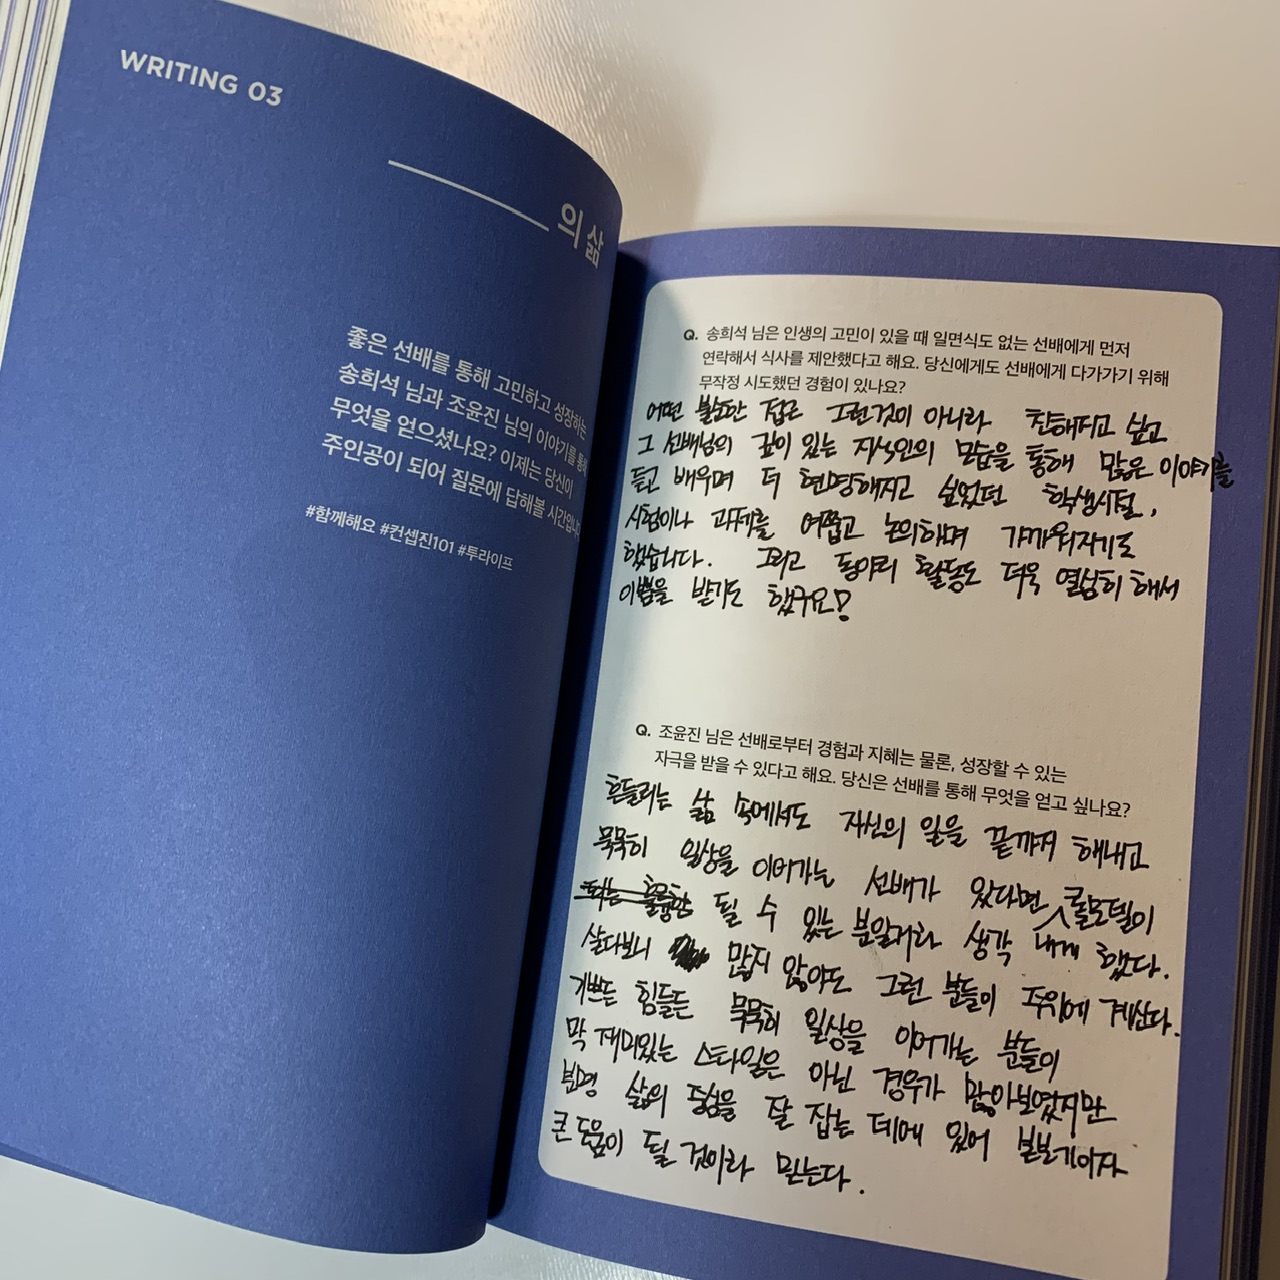 WRITING 03
의 삶
좋은 선배를 통해 고민하고 성장하는
송희석 님과 조윤진 님의 이야기를 통해
무엇을 얻으셨나요? 이제는 당신이
주인공이 되어 질문에 답해볼 시간입니다
#함께해요 #컨셉진101 #투라이프
Q. 송희석 님은 인생의 고민이 있을 때 일면식도 없는 선배에게 먼저
연락해서 식사를 제안했다고 해요. 당신에게도 선배에게 다가가기 위해
무작정 시도했던 경험이 있나요?
어떤 불순한 접근 그런것이 아니라 친해지고 싶고
그 선배님의 깊이 있는 지식인의 모습을 통해 많은 이야기를
듣고 배우며 더 현명해지고 싶었던 학생시절,
시험이나 과제를 여쭙고 논의하며 가까워지기도
했습니다. 그리고 동아리 활동도 더욱 열심히 해서
이쁨을 받기도 했구요!
Q. 조윤진 님은 선배로부터 경험과 지혜는 물론, 성장할 수 있는
자극을 받을 수 있다고 해요. 당신은 선배를 통해 무엇을 얻고 싶나요?
흔들리는 삶 속에서도 자신의 일을 끝까지 해내고
묵묵히 일상을 이어가는 선배가 있다면 롤모델이
될 수 있는 분일거라 생각 내게 했다.
살다보니 많지 않아도 그런 분들이 주위에 계신다.
기쁘든 힘들든 묵묵히 일상을 이어가는 분들이
막 재미있는 스타일은 아닌 경우가 많아보였지만
분명 삶의 중심을 잘 잡는 데에 있어 본보기이자
큰 도움이 될 것이라 믿는다.